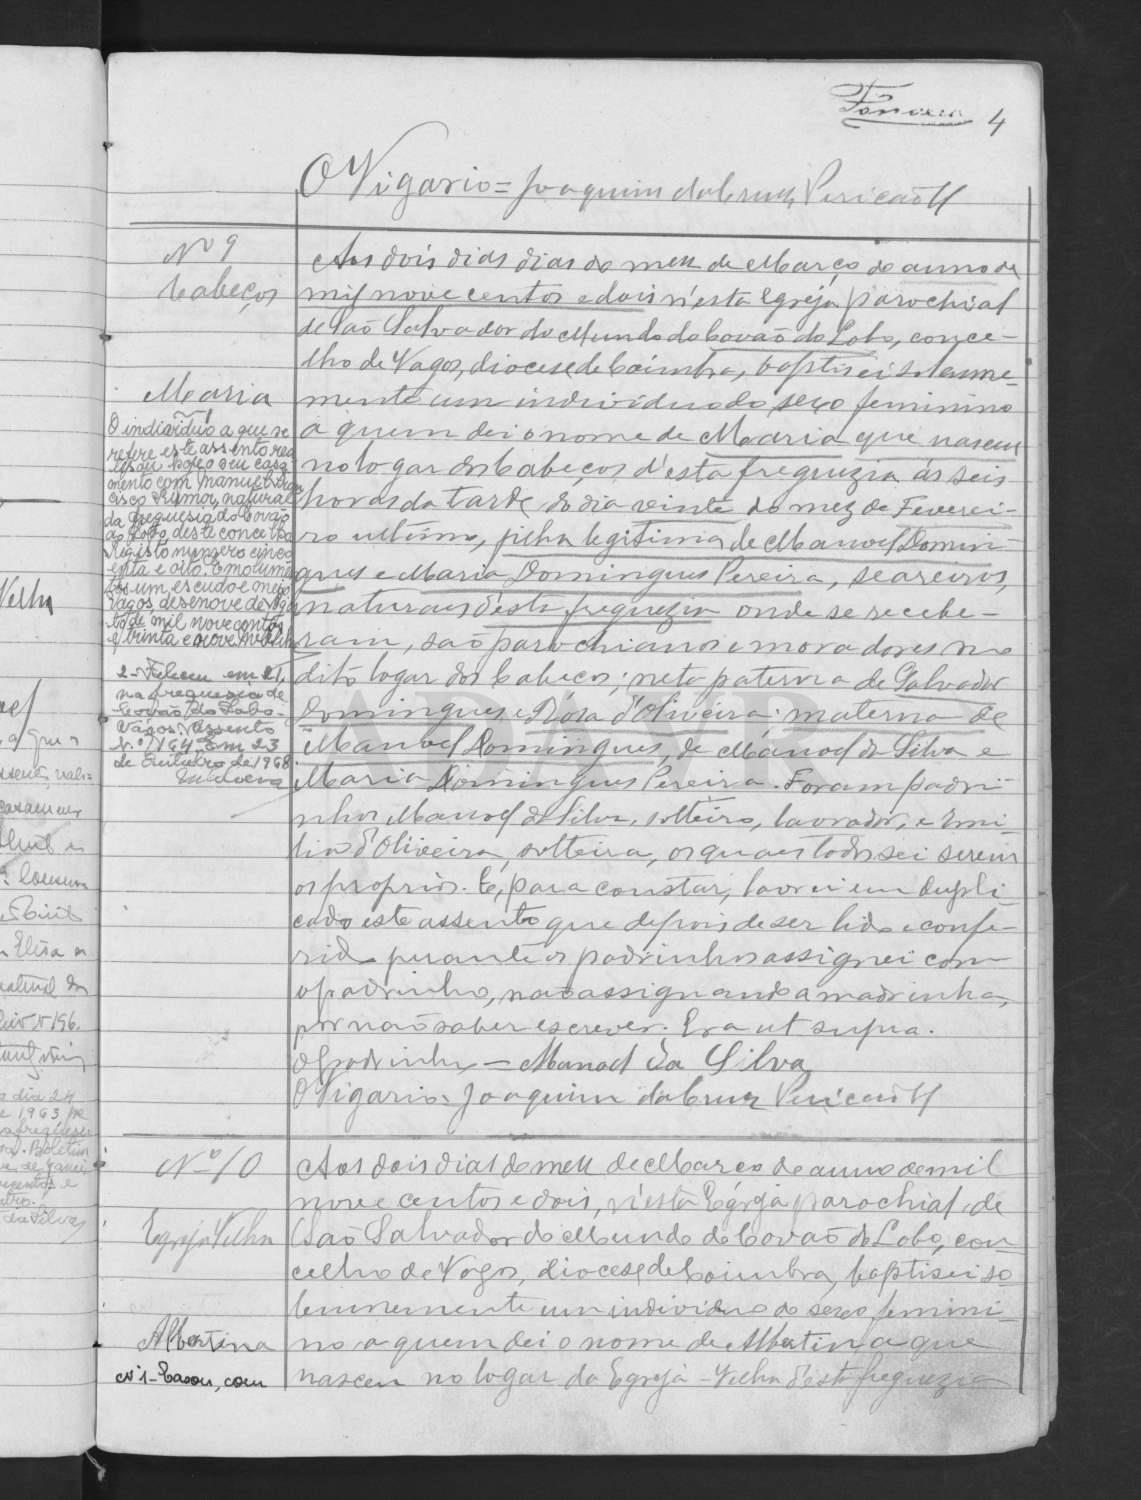 4
O Vigario = Joaquim da Cruz Pericão
Nº 9
Cabeços
Maria
O individuo a que se
refere este assento rea
lisou hoje o seu casa
mento com Manuel Fran
cisco Ruma, natural
da freguesia do Covão
do Lobo, deste concelho
Registo numero cinco
enta e oito. Emolumen
tos um escudo e meio
Vagos, desenove de
de mil novecentos
e trinta e nove
2- Faleceu em 21,
na freguesia de
Covão do Lobo.
Vagos. Assento
N.º 164. Em 23
de Outubro de 1968
Aos dois dias dias do mez de Março do anno de
mil nove centos e dois n'esta Egreja parochial
de São Salvador do Mundo do Covão do Lobo, conce-
lho de Vagos, diocese de Coimbra, baptisei solemne-
mente um individuo do sexo feminino
a quem dei o nome de Maria que nasceu
no logar dos Cabeços d'esta freguezia ás seis
horas da tarde do dia vinte do mez de Feverei-
ro ultimo, filha legitima de Manoel Domin-
gues e Maria Domingues Pereira, seareiros,
naturaes d'esta freguezia onde se recebe-
ram, são parochianos e moradores no
dito logar dos Cabeços; neta paterna de Salvador
Domingues e Rosa d'Oliveira; materna de
Manoel Domingues, de Manoel da Silva e
Maria Domingues Pereira. Foram padri-
nhos Manoel da Silva, solteiro, lavrador, e Emi-
lia d'Oliveira, solteira, os quaes todos sei serem
os proprios. E, para constar, lavrei em dupli-
cado este assento que depois de ser lido e confe-
rido perante os padrinhos assignei com
o padrinho, não assignando a madrinha,
por não saber escrever. Era ut supra.
O padrinho = Manoel da Silva
O Vigario = Joaquim da Cruz Pericão
Nº 10
Egreja Velha
Albertina
Nº 1 - Casou, com
Aos dois dias do mez de Março do anno de mil
nove centos e dois, n'esta Egreja parochial de
São Salvador do Mundo do Covão do Lobo, con-
celho de Vagos, diocese de Coimbra, baptisei so-
lemnemente um individuo do sexo femini-
no a quem dei o nome de Albertina que
nasceu no logar da Egreja-Velha d'esta freguezia
ADAVR